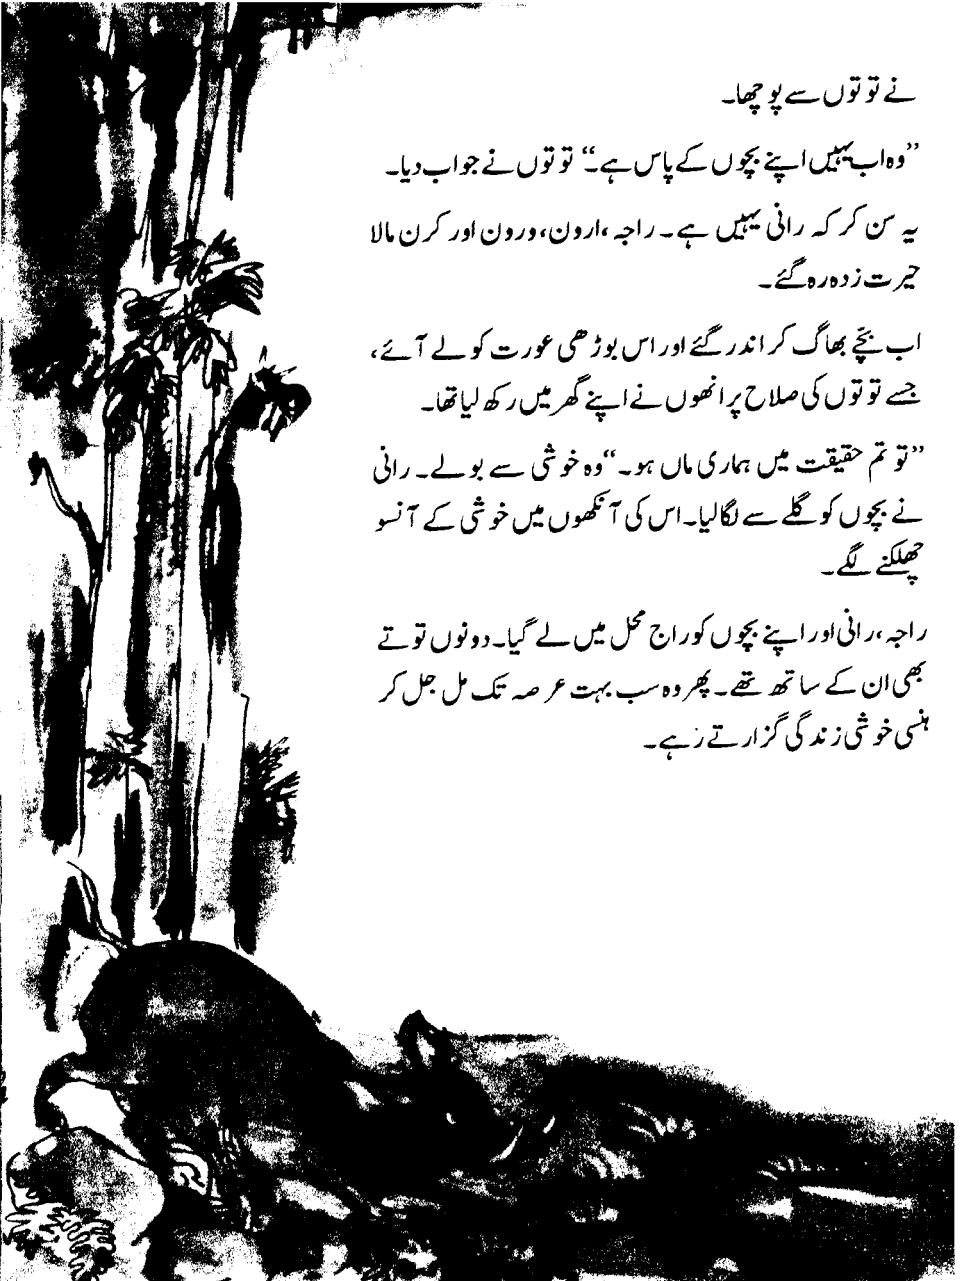 نے توتوں سے پوچھا۔
”وہ اب یہیں اپنے بچوں کے پاس ہے۔“ توتوں نے جواب دیا۔
یہ سن کر کہ رانی یہیں ہے۔ راجہ ،ارون، ورون اور کرن مالا
حیرت زدہ رہ گئے۔
اب بچّے بھاگ کر اندر گئے اور اس بوڑھی عورت کو لے آئے،
جسے توتوں کی صلاح پر انھوں نے اپنے گھر میں رکھ لیا تھا۔
”تو تم حقیقت میں ہماری ماں ہو۔“ وہ خوشی سے بولے۔ رانی
نے بچوں کو گلے سے لگا لیا۔ اس کی آنکھوں میں خوشی کے آنسو
چھلکنے لگے۔
راجہ ،رانی اور اپنے بچوں کو راج محل میں لے گیا۔ دونوں توتے
بھی ان کے ساتھ تھے۔ پھر وہ سب بہت عرصہ تک مل جل کر
ہنسی خوشی زندگی گزارتے رہے۔